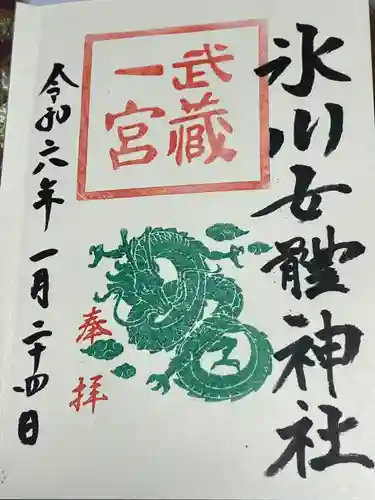 氷川女體神社
武蔵
一宮
奉拝
令和六年一月二十四日